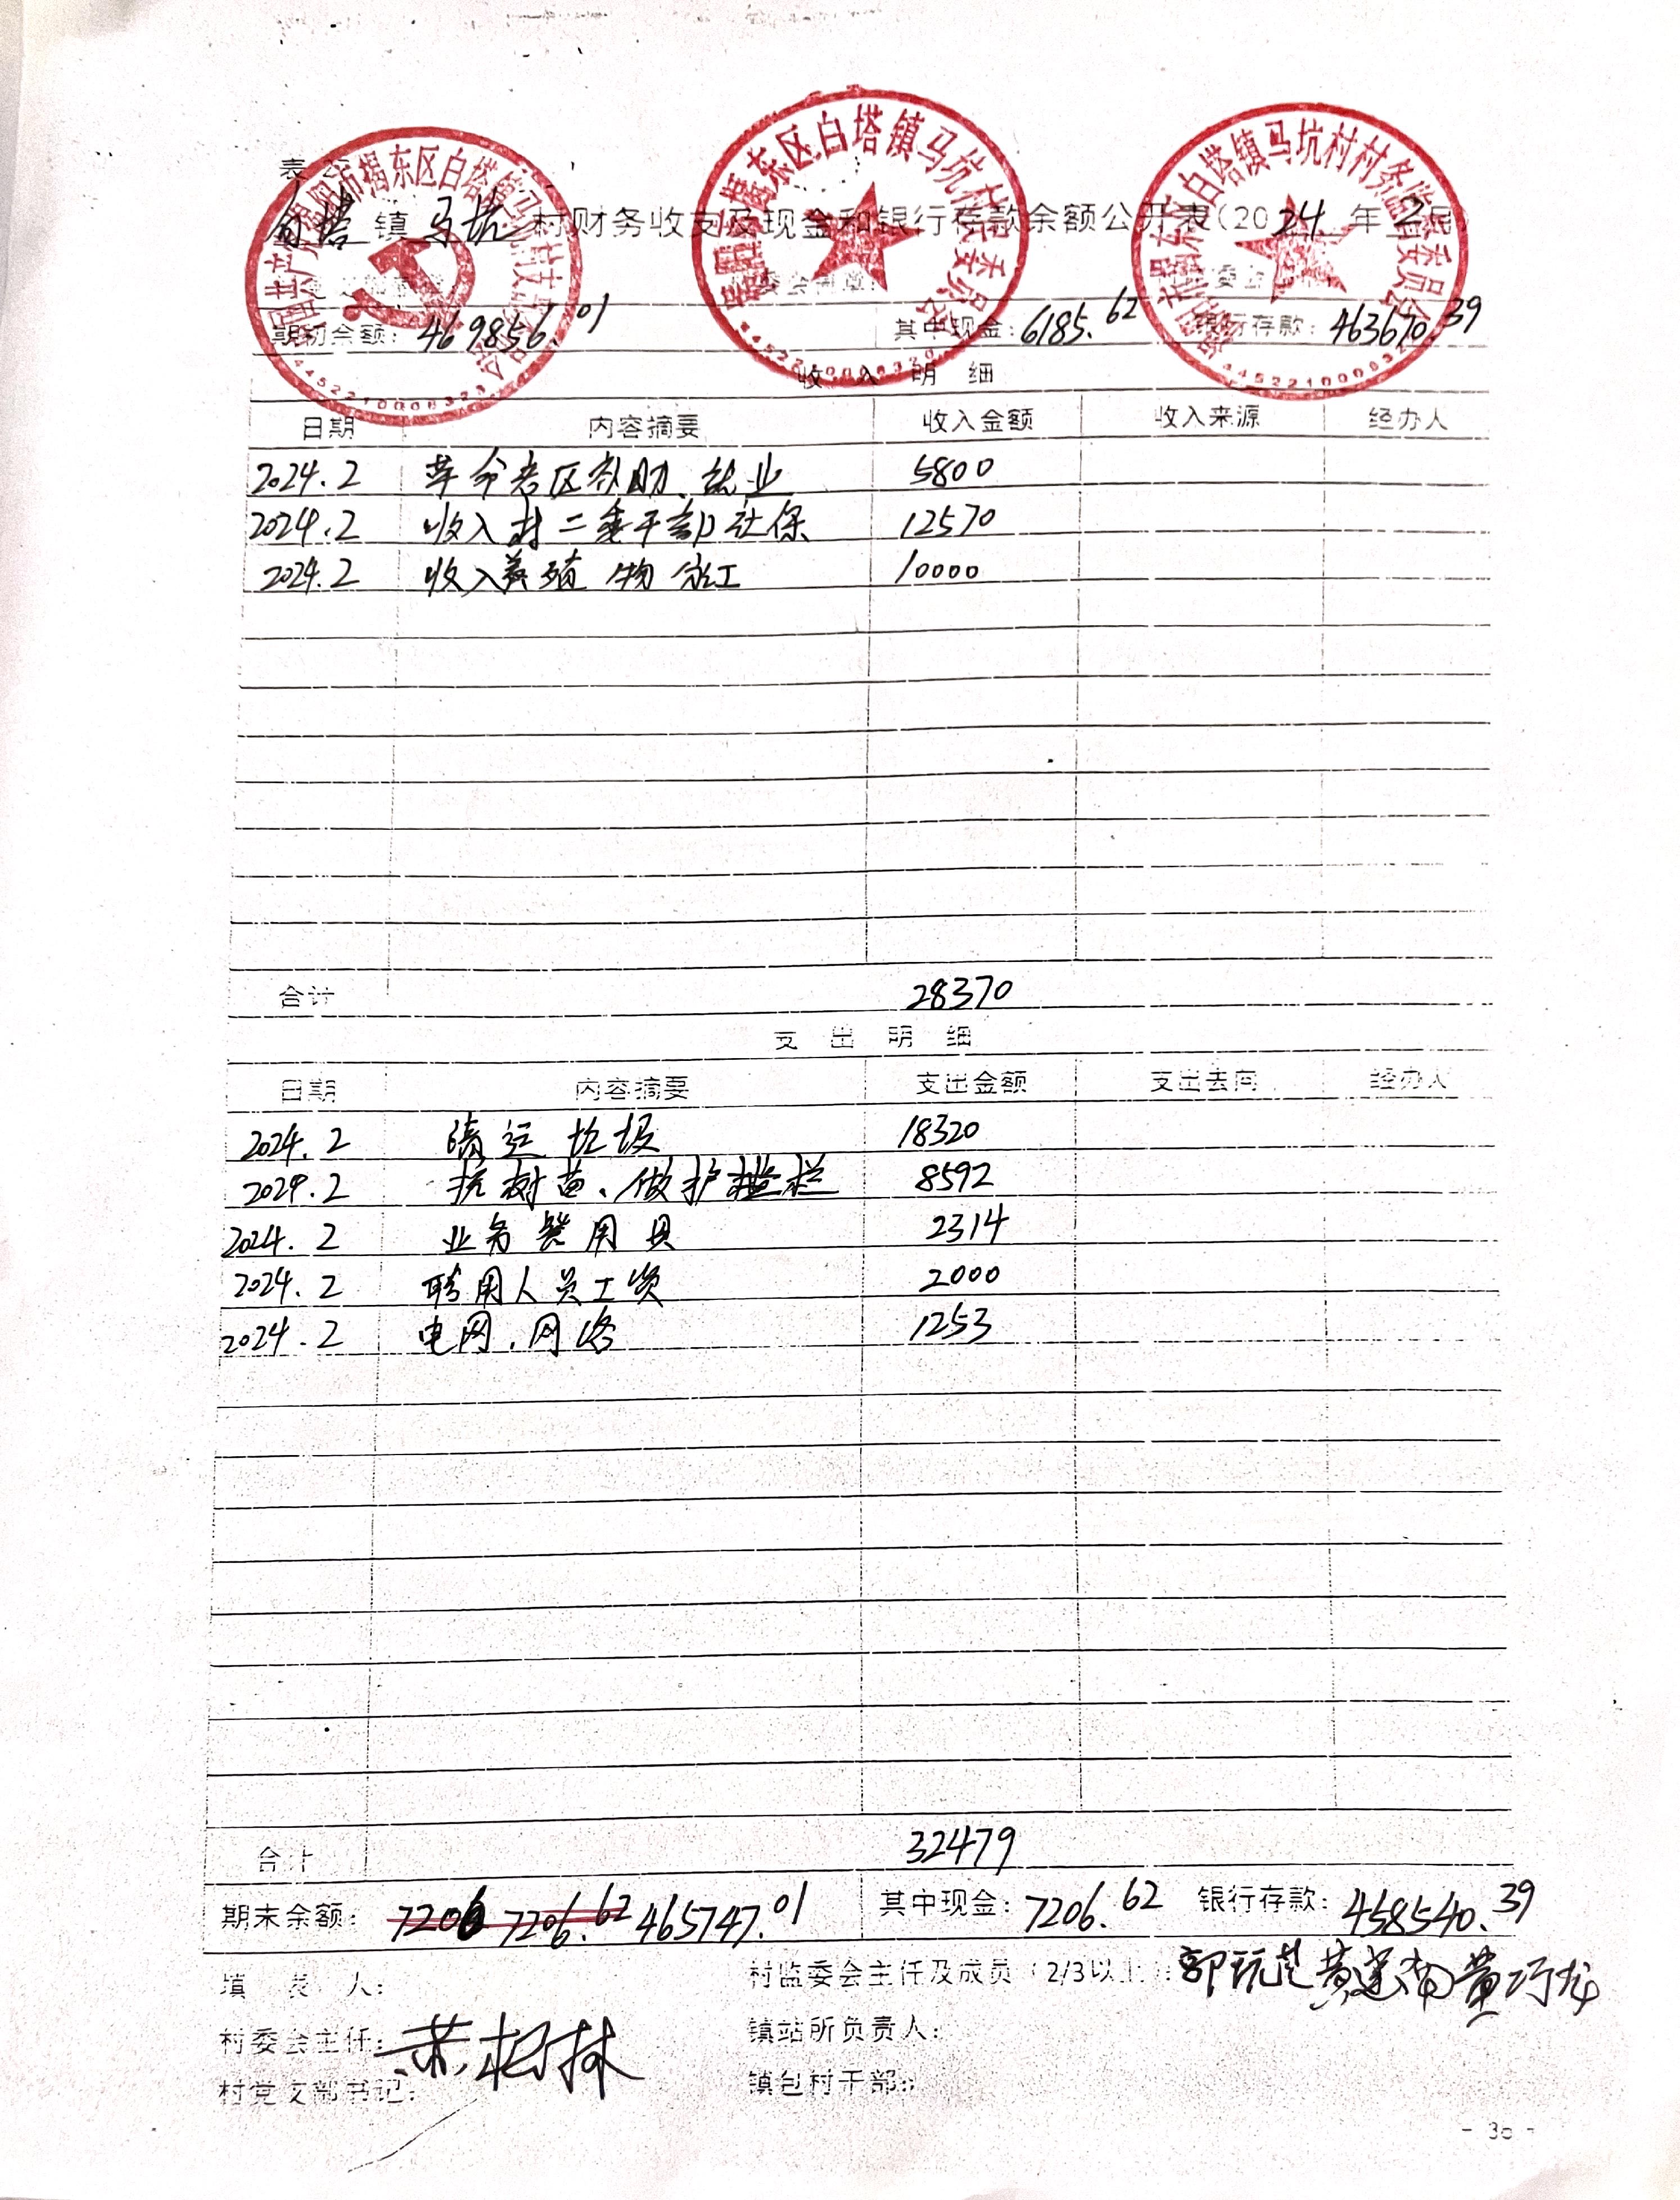 白塔镇马坑村财务收支及现金和银行存款余额公开表(2024年2月)
期初余额: 469856.01 其中现金: 6185.62 银行存款: 463670.39
收入明细
日期 内容摘要 收入金额 收入来源 经办人
2024.2 革命老区补助、就业 5800
2024.2 收入村二委干部社保 12570
2024.2 收入养殖物 10000
合计 28370
支出明细
日期 内容摘要 支出金额 支出去向 经办人
2024.2 清运垃圾 18320
2024.2 树苗、做护栏 8592
2024.2 业务费用具 2314
2024.2 聘用人员工资 2000
2024.2 电网、网络 1253
合计 32479
期末余额: 7206 7206.62 465747.01 其中现金: 7206.62 银行存款: 458540.39
填表人: 村监委会主任及成员(2/3以上):
村委会主任: 镇站所负责人:
村党支部书记: 镇包村干部:
- 30 -